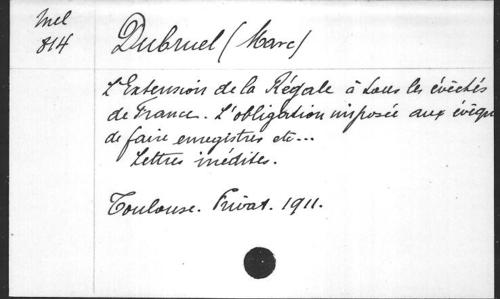 Mel
814
Dubruel (Marc)
L'Extension de la Régale à tous les évêchés
de France. L'obligation imposée aux évêqu
de faire enregistrer etc...
Lettres inédites.
Toulouse. Privat. 1911.